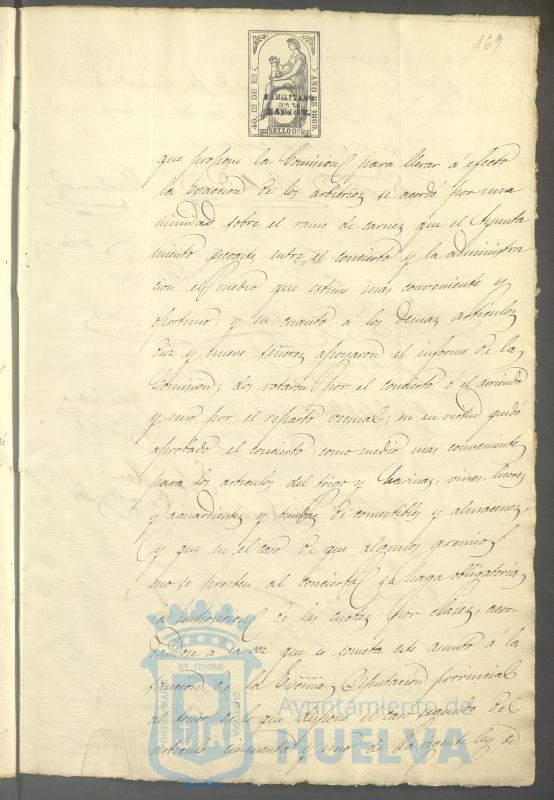 169
40. Cs DE Eº.
AÑO DE 1869.
HABILITADO
POR LA
NACION.
SELLO 9º
que propone la Comision para llevar a efecto
la exaccion de los arbitrios se acordó por una
nimidad sobre el ramo de carnes que el Ayunta
miento escogite entre el concierto y la administra
cion el medio que estime mas conveniente y
oportuno; y en cuanto á los demas articulos
diez y nueve Señores apoyaron el informe de la
Comision; dos votaron por el concierto ó el arriendo
y uno por el reparto vecinal; en su virtud quedó
aprobado el concierto como medio mas conveniente
para los articulos del trigo y harinas, vinos, licores
y aguardientes y tiendas de comestibles y almacenes,
y que en el caso de que algunos gremios
no se presten al concierto se haga obligatoria
la imposicion de las cuotas por clases, acor
dandose a la vez que se someta este asunto á la
sancion de la Excma Diputacion provincial
al tenor de lo que dispone el caso segundo del
articulo cincuenta y uno de la vigente ley de
ET TERRÆ
Ayuntamiento de
HUELVA